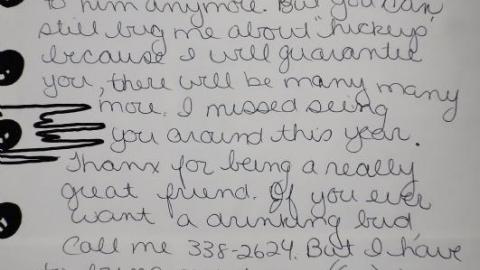 to him anymore. But you can
still bug me about "hickeys"
because I will guarantee
you, there will be many many
more. I missed seing
you around this year.
Thanx for being a really
great friend. If you ever
want a drinking bud
call me 338-2624. But I have